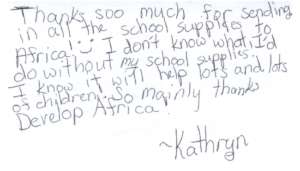 Thanks soo much for sending
in all the school supplies to
Africa. I don't know what I'd
do without my school supplies.
I know it will help lots and lots
of children. So mainly thanks
Develop Africa.
~Kathryn